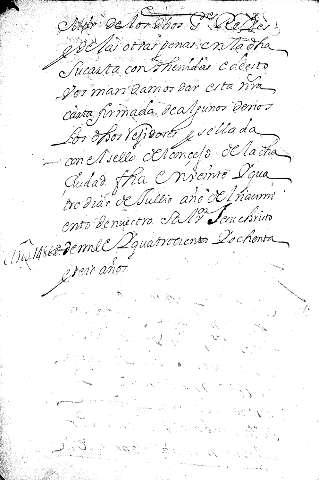 Señor de los dhos Rs. Reyes
y de las otras penas en la dha
su carta conthenidas e desto
vos mandamos dar esta nra
carta firmada de algunos de nos
los dhos Regidores y sellada
con el sello del concejo de la dha
Ciudad fha en veinte y qua
tro dias de Jullio año del nacimi
ento de nuestro Sr Jesu christo
de mill e quatrocientos y ochenta
y seis años
1486